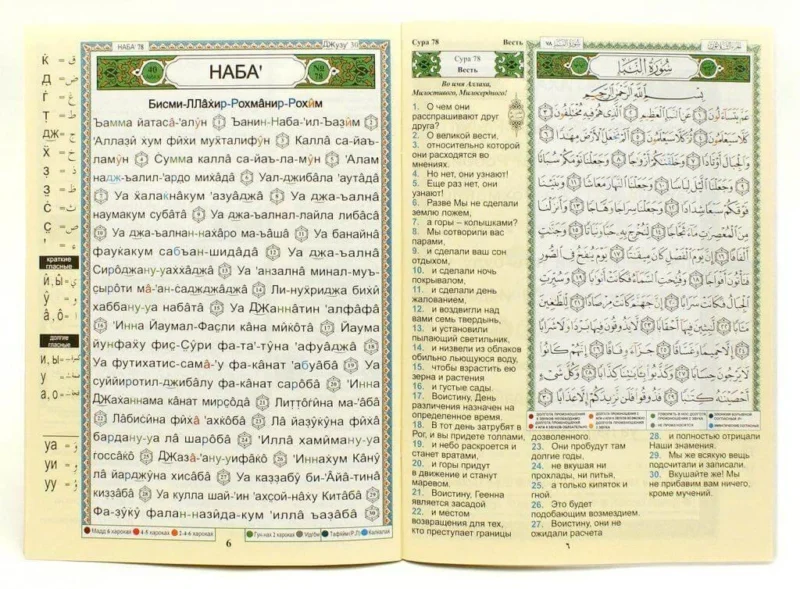 НАБА' 78
Джузу' 30
НАБА'
№ 78
Бисми-ЛЛâхир-Рохмâнир-Рохйм
Ъамма йатасâ-'алӯн 1 Ъанин-Наба-'ил-Ъаẓӣм 2
'Аллаẕӣ хум фӣхи мухталифӯн 3 Калла са-йаъ-
ламӯн 4 Сумма калла са-йаъ-ла-мӯн 5 'Алам
надж-ъалил-'ардо михâдâ 6 Уал-джибâла 'аутâдâ
7 Уа халакнâкум 'азуâджâ 8 Уа джа-ъалнâ
наумакум субâтâ 9 Уа джа-ъалнал-лайла либâсâ
10 Уа джа-ъалнан-нахâро ма-ъâша 11 Уа банайнâ
фаукакум сабъан-шидâдâ 12 Уа джа-ъалнâ
Сирôджану-уаххâджâ 13 Уа 'анзалнâ минал-муъ-
сыроти мâ-'ан-саджджâджâ 14 Ли-нухриджа бихӣ
хаббану-уа набâтâ 15 Уа джаннâтин 'алфâфâ
16 'Инна Йаумал-Фасли кâна мӣкôтâ 17 Йаума
йунфаху фис-Сӯри фа-та'-тӯна 'афуâджâ 18
Уа футихатис-самâ-'у фа-кâнат 'абуâбâ 19 Уа
суййиротил-джибâлу фа-кâнат сарôбâ 20 'Инна
Джаханнама кâнат мирсôдâ 21 Литтôгӣна ма-'âбâ
22 Лâбисӣна фӣхâ 'ахкôбâ 23 Лâ йазӯкӯна фӣхâ
бардану-уа лâ шарôбâ 24 'Иллâ хамӣману-уа
госсâкô 25 Джазâ-'ану-уифâкô 26 'Иннахум Кâнӯ
лâ йарджӯна хисâбâ 27 Уа каззабӯ би-'Âйâ-тинâ
киззâбâ 28 Уа кулла шай-'ин 'ахсой-нâху Китâбâ 29
Фа-зӯкӯ фалан-назӣда-кум 'иллâ ъазâбâ 30
6
краткие гласные
долгие гласные
и, ы
у
а, о
уа
уи
уу
Сура 78
Весть
Сура 78
Весть
Во имя Аллаха,
Милостивого, Милосердного!
1. О чем они
расспрашивают друг
друга?
2. О великой вести,
3. относительно которой
они расходятся во
мнениях.
4. Но нет, они узнают!
5. Еще раз нет, они
узнают!
6. Разве Мы не сделали
землю ложем,
7. а горы – колышками?
8. Мы сотворили вас
парами,
9. и сделали ваш сон
отдыхом,
10. и сделали ночь
покрывалом,
11. и сделали день
жалованием,
12. и воздвигли над
вами семь твердынь,
13. и установили
пылающий светильник,
14. и низвели из облаков
обильно льющуюся воду,
15. чтобы взрастить ею
зерна и растения
16. и густые сады.
17. Воистину, День
различения назначен на
определенное время.
18. В тот день затрубят в
Рог, и вы придете толпами,
19. и небо раскроется и
станет вратами,
20. и горы придут
в движение и станут
маревом.
21. Воистину, Геенна
является засадой
22. и местом
возвращения для тех,
кто преступает границы
дозволенного.
23. Они пробудут там
долгие годы,
24. не вкушая ни
прохлады, ни питья,
25. а только кипяток и
гной.
26. Это будет
подобающим возмездием.
27. Воистину, они не
ожидали расчета
28. и полностью отрицали
Наши знамения.
29. Мы же всякую вещь
подсчитали и записали.
30. Вкушайте же! Мы
не прибавим вам ничего,
кроме мучений.
سُورَةُ النَّبَإِ
بِسْمِ اللَّهِ الرَّحْمَٰنِ الرَّحِيمِ
عَمَّ يَتَسَاءَلُونَ ١ عَنِ النَّبَإِ الْعَظِيمِ ٢ الَّذِي هُمْ فِيهِ مُخْتَلِفُونَ ٣
كَلَّا سَيَعْلَمُونَ ٤ ثُمَّ كَلَّا سَيَعْلَمُونَ ٥ أَلَمْ نَجْعَلِ الْأَرْضَ مِهَادًا ٦
وَالْجِبَالَ أَوْتَادًا ٧ وَخَلَقْنَاكُمْ أَزْوَاجًا ٨ وَجَعَلْنَا نَوْمَكُمْ سُبَاتًا
٩ وَجَعَلْنَا اللَّيْلَ لِبَاسًا ١٠ وَجَعَلْنَا النَّهَارَ مَعَاشًا ١١ وَبَنَيْنَا
فَوْقَكُمْ سَبْعًا شِدَادًا ١٢ وَجَعَلْنَا سِرَاجًا وَهَّاجًا ١٣ وَأَنْزَلْنَا
مِنَ الْمُعْصِرَاتِ مَاءً ثَجَّاجًا ١٤ لِنُخْرِجَ بِهِ حَبًّا وَنَبَاتًا ١٥ وَجَنَّاتٍ
أَلْفَافًا ١٦ إِنَّ يَوْمَ الْفَصْلِ كَانَ مِيقَاتًا ١٧ يَوْمَ يُنْفَخُ فِي الصُّورِ
فَتَأْتُونَ أَفْوَاجًا ١٨ وَفُتِحَتِ السَّمَاءُ فَكَانَتْ أَبْوَابًا ١٩ وَسُيِّرَتِ
الْجِبَالُ فَكَانَتْ سَرَابًا ٢٠ إِنَّ جَهَنَّمَ كَانَتْ مِرْصَادًا ٢١ لِلطَّاغِينَ
مَآبًا ٢٢ لَابِثِينَ فِيهَا أَحْقَابًا ٢٣ لَا يَذُوقُونَ فِيهَا بَرْدًا وَلَا شَرَابًا
٢٤ إِلَّا حَمِيمًا وَغَسَّاقًا ٢٥ جَزَاءً وِفَاقًا ٢٦ إِنَّهُمْ كَانُوا
لَا يَرْجُونَ حِسَابًا ٢٧ وَكَذَّبُوا بِآيَاتِنَا كِذَّابًا ٢٨ وَكُلَّ شَيْءٍ
أَحْصَيْنَاهُ كِتَابًا ٢٩ فَذُوقُوا فَلَنْ نَزِيدَكُمْ إِلَّا عَذَابًا ٣٠
٦